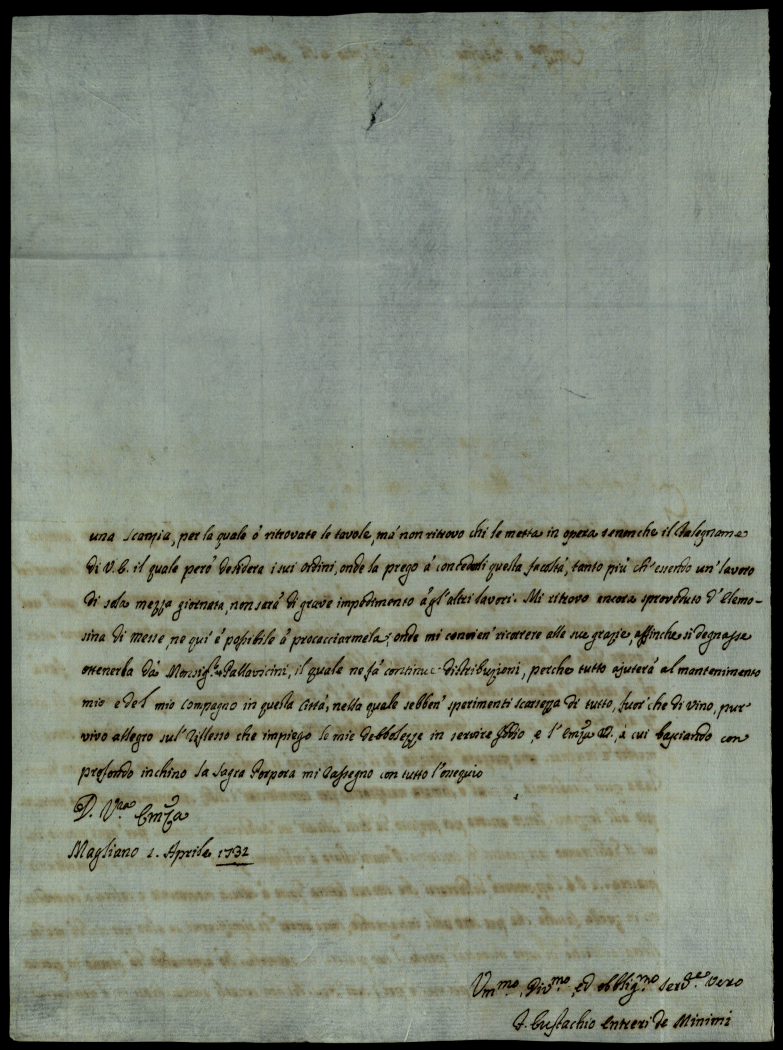 una Scanzia, per la quale ò ritrovate le tavole, mà non ritrovo chi le metta in opera senonche il Falegname
di V. E. il quale però desidera i suoi ordini, onde la prego à concederli questa facoltà, tanto più ch'essendo un' lavoro
di sola mezza giornata, non sarà di grave impedimento àgl'altri lavori. Mi ritrovo encora sproveduto d'Elemo-
sina di messe, ne qui è possibile ò procacciarmela; onde mi convien' ricorrere alle sue grazie, affinche si degnasse
ottenerla dà Monsig.r Pallavicini, il quale ne fà continue distribuzioni, perche tutto ajuterà al mantenimento
mio e del mio compagno in questa Città, nella quale sebben' sperimenti scarsezza di tutto, fuor' che di vino, pur'
vivo allegro sul' riflesso che impiego le mie debbolezze in servire Iddio, e l' Em.za V. à cui basciando con
profondo inchino la Sagra Porpora mi rassegno con tutto l'ossequio
D. V.ra Em.za
Magliano 1. Aprile 1732
Um.mo, Div.mo, ed obblig.mo Serv.e vero
F. Eustachio Entreri de Minimi